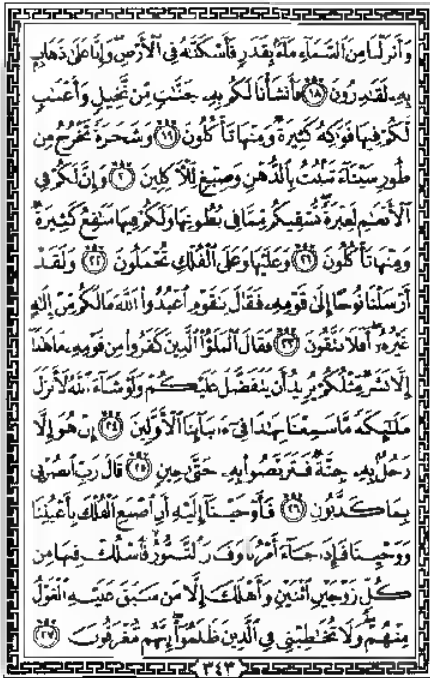 وَأَنزَلْنَا مِنَ السَّمَآءِ مَآءً بِقَدَرٍ فَأَسْكَنَّهُ فِي الْأَرْضِ وَإِنَّا عَلَىٰ ذَهَابٍ
بِهِۦ لَقَٰدِرُونَ ١٨ فَأَنشَأْنَا لَكُم بِهِۦ جَنَّٰتٍ مِّن نَّخِيلٍ وَأَعْنَٰبٍ
لَّكُمْ فِيهَا فَوَٰكِهُ كَثِيرَةٌ وَمِنْهَا تَأْكُلُونَ ١٩ وَشَجَرَةً تَخْرُجُ مِن
طُورِ سَيْنَآءَ تَنۢبُتُ بِالدُّهْنِ وَصِبْغٍ لِّلْآكِلِينَ ٢٠ وَإِنَّ لَكُمْ فِي
الْأَنْعَٰمِ لَعِبْرَةً نُّسْقِيكُم مِّمَّا فِي بُطُونِهَا وَلَكُمْ فِيهَا مَنَٰفِعُ كَثِيرَةٌ
وَمِنْهَا تَأْكُلُونَ ٢١ وَعَلَيْهَا وَعَلَى الْفُلْكِ تُحْمَلُونَ ٢٢ وَلَقَدْ
أَرْسَلْنَا نُوحًا إِلَىٰ قَوْمِهِۦ فَقَالَ يَٰقَوْمِ اعْبُدُوا۟ اللَّهَ مَا لَكُم مِّنْ إِلَٰهٍ
غَيْرُهُۥٓ أَفَلَا تَتَّقُونَ ٢٣ فَقَالَ الْمَلَؤُا۟ الَّذِينَ كَفَرُوا۟ مِن قَوْمِهِۦ مَا هَٰذَآ
إِلَّا بَشَرٌ مِّثْلُكُمْ يُرِيدُ أَن يَتَفَضَّلَ عَلَيْكُمْ وَلَوْ شَآءَ اللَّهُ لَأَنزَلَ
مَلَٰٓئِكَةً مَّا سَمِعْنَا بِهَٰذَا فِيٓ ءَابَآئِنَا الْأَوَّلِينَ ٢٤ إِنْ هُوَ إِلَّا
رَجُلٌۢ بِهِۦ جِنَّةٌ فَتَرَبَّصُوا۟ بِهِۦ حَتَّىٰ حِينٍ ٢٥ قَالَ رَبِّ انصُرْنِي
بِمَا كَذَّبُونِ ٢٦ فَأَوْحَيْنَآ إِلَيْهِ أَنِ اصْنَعِ الْفُلْكَ بِأَعْيُنِنَا
وَوَحْيِنَا فَإِذَا جَآءَ أَمْرُنَا وَفَارَ التَّنُّورُ فَاسْلُكْ فِيهَا مِن
كُلٍّ زَوْجَيْنِ اثْنَيْنِ وَأَهْلَكَ إِلَّا مَن سَبَقَ عَلَيْهِ الْقَوْلُ
مِنْهُمْ وَلَا تُخَٰطِبْنِي فِي الَّذِينَ ظَلَمُوٓا۟ إِنَّهُم مُّغْرَقُونَ ٢٧
٣٤٣